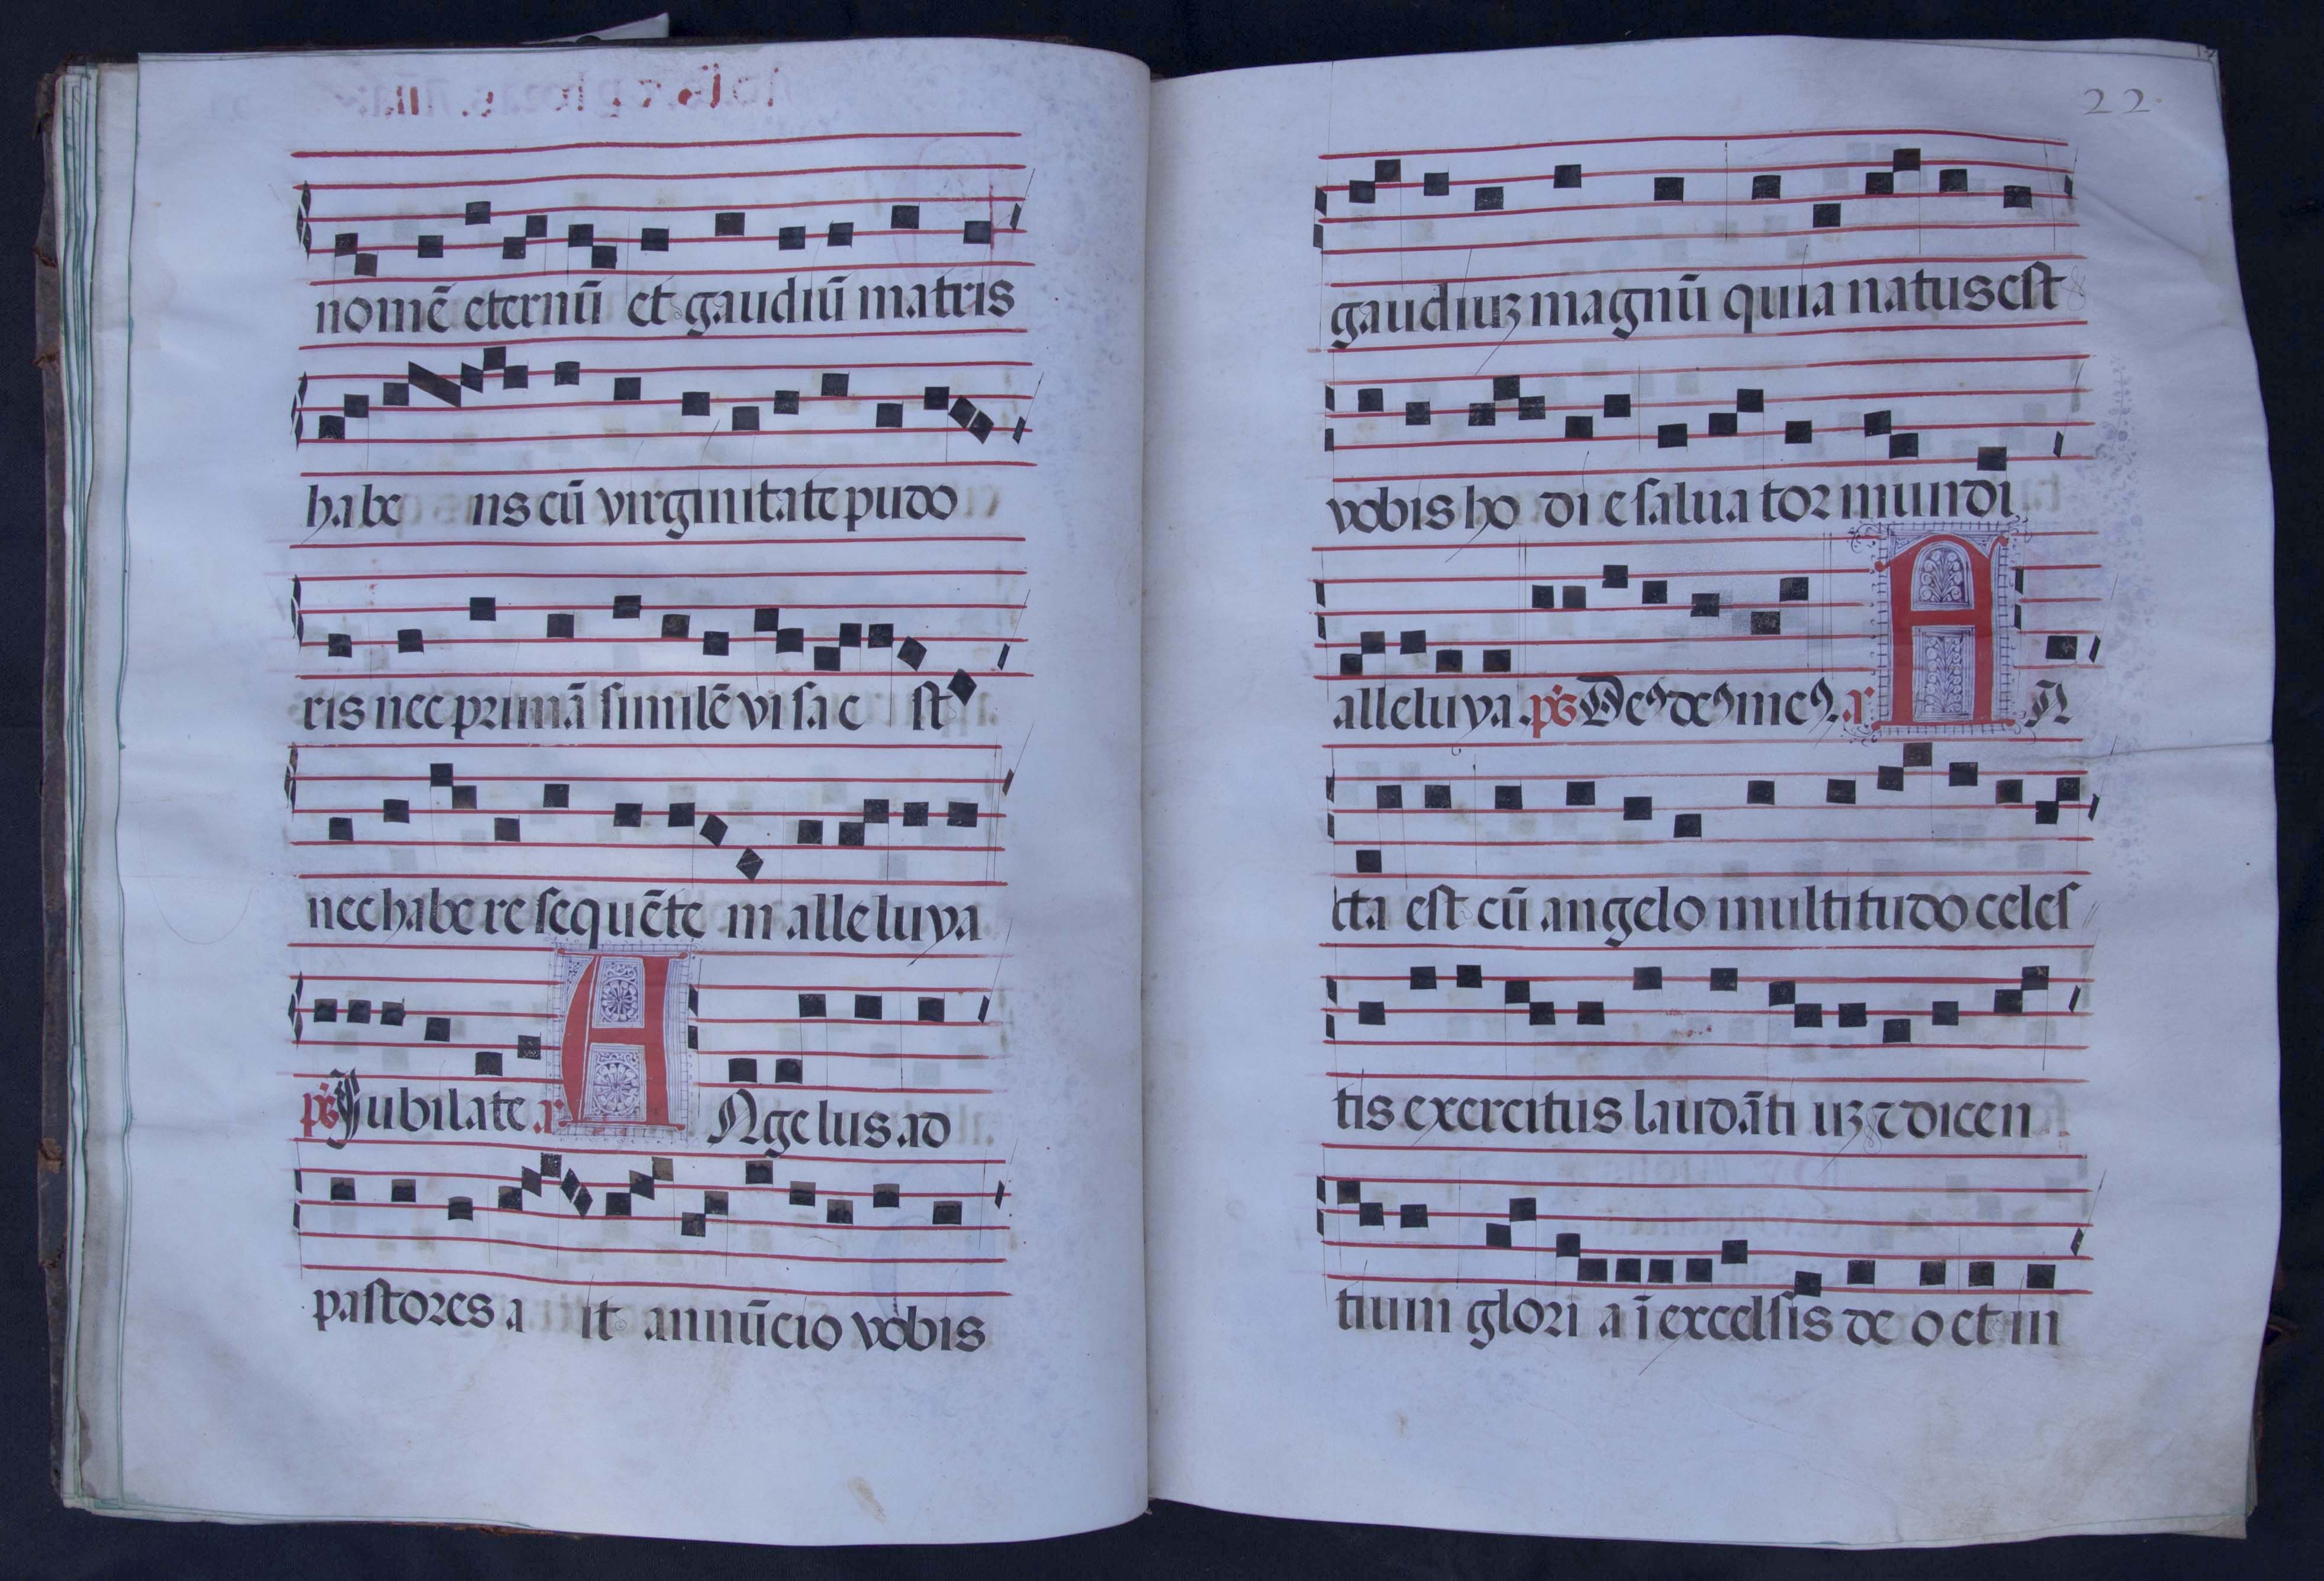 nomē eternū et gaudiū matris
habe ns cū virginitate pudo
ris nec primā similē visa e st
nec habere sequēte m alleluya
ps Jubilate a A Ngelus ad
pastores a it annūcio vobis
22
gaudiuꝫ magnū quia natus est
vobis ho di e salua tor mundi
alleluya. ps Deꝰ deꝰ meꝰ. a A N
cta est cū angelo multitudo celes
tis exercitus laudāti uꝫ ⁊ dicen
tium glori a ī excelsis de o et in